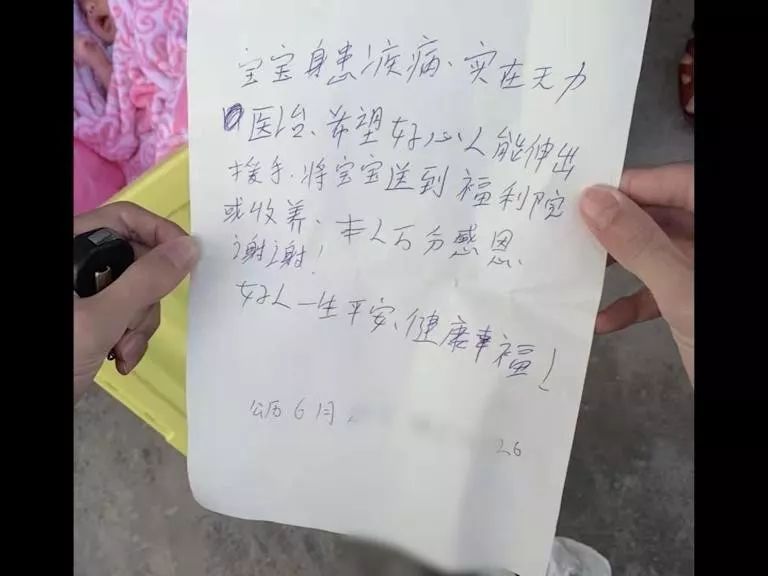 宝宝身患疾病、实在无力
医治、希望好心人能伸出
援手.将宝宝送到福利院
或收养、本人万分感恩
谢谢!
好人一生平安、健康幸福!
公历6月
26